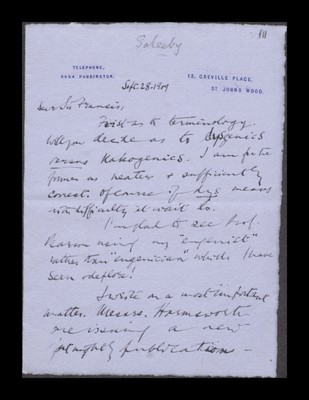 Saleeby
TELEPHONE,
PADDINGTON.
13, GREVILLE PLACE,
ST JOHN'S WOOD.
Sept. 28. 1909
Dear Sir Francis,
First as to terminology.
Will you decide as to dysgenics
versus Kakogenics. I am for the
former as neater & sufficiently
correct. Of course if dys means
with difficulty it won't do.
I'm glad to see Prof.
Pearson using my "eugenist"
rather than "eugenician" which I have
seen
I write on a most important
matter. Messrs. Harmsworth
are issuing a new
fortnightly publication –